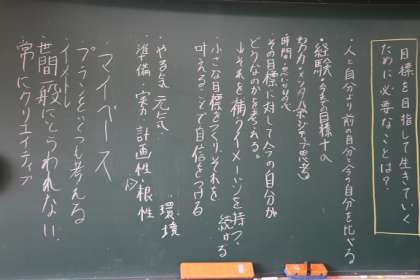 目標を目指して生きていく
ために必要なことは?
・人と自分より前の自分と今の自分を比べる
・経験
その目標に対して今の自分が
どうなのかを考える。
↓それを補うイメージを持つ、続ける
・小さな目標をつくりそれを
叶えることで自信をつける
・やる気、元気、
・環境
準備、実力 計画性、根性
マイペース
プランをいくつも考える
イメトレ
世間一般にとらわれない
常にクリエイティブ